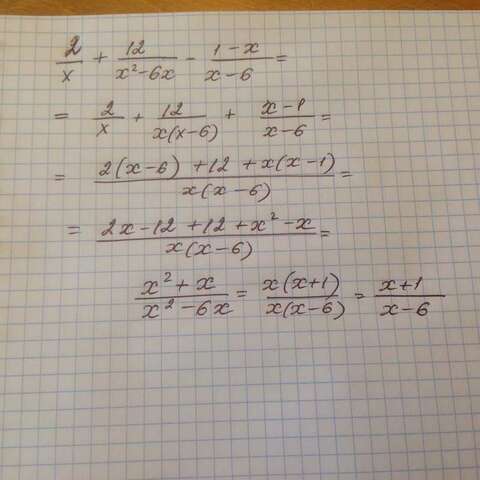 2/x + 12/(x²-6x) - (1-x)/(x-6) =
= 2/x + 12/(x(x-6)) + (x-1)/(x-6) =
= (2(x-6)+12+x(x-1))/(x(x-6)) =
= (2x-12+12+x²-x)/(x(x-6)) =
(x²+x)/(x²-6x) = (x(x+1))/(x(x-6)) = (x+1)/(x-6)